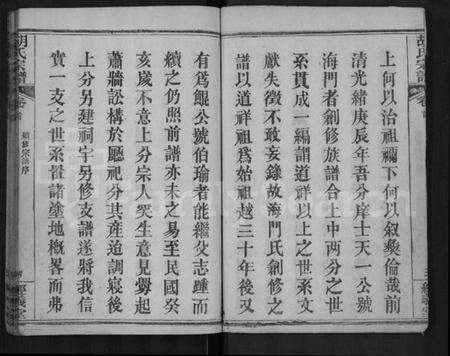 胡氏宗譜
上何以治祖禰下何以叙彝倫哉前
清光緒庚辰年吾分庠士天一公號
海門者創修族譜合上中兩分之世
系貫成一編謂道祥以上之世系文
獻失徵不敢妄錄故海門氏創修之
譜以道祥祖爲始祖越三十年後又
有爲鯤公號伯瑜者能繼父志踵而
續之仍照前譜亦未之易至民國癸
亥歲不意上分宗人哭生意見釁起
蕭牆訟構於廳祀分其產迨調寢後
上分另建祠宇另修支譜遂將我信
實一支之世系置諸塗地概畧而弗
胡氏宗譜
卷首
續修宗譜序